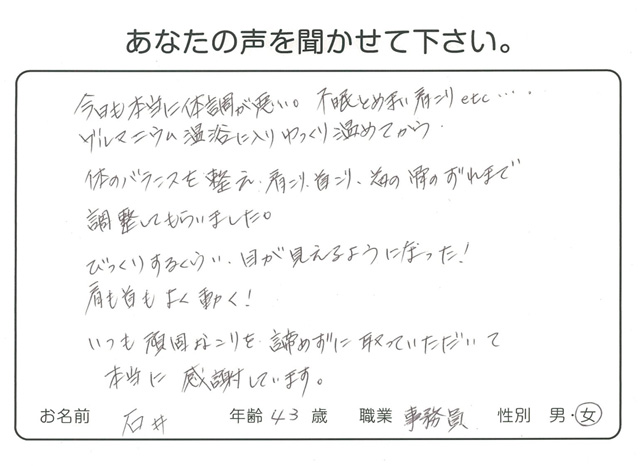 あなたの声を聞かせて下さい。
今日も本当に体調が悪い。不眠とめまい肩こりetc・・・・
ゲルマニウム温浴に入りゆっくり温めてから
体のバランスを整え、肩こり、首こり、頭の骨のずれまで
調整してもらいました。
びっくりするくらい、目が見えるようになった!
肩も首もよく動く!
いつも頑固なこりを、諦めずに取っていただいて
本当に感謝しています。
お名前 石井 年齢 43 歳 職業 事務員 性別 男・女